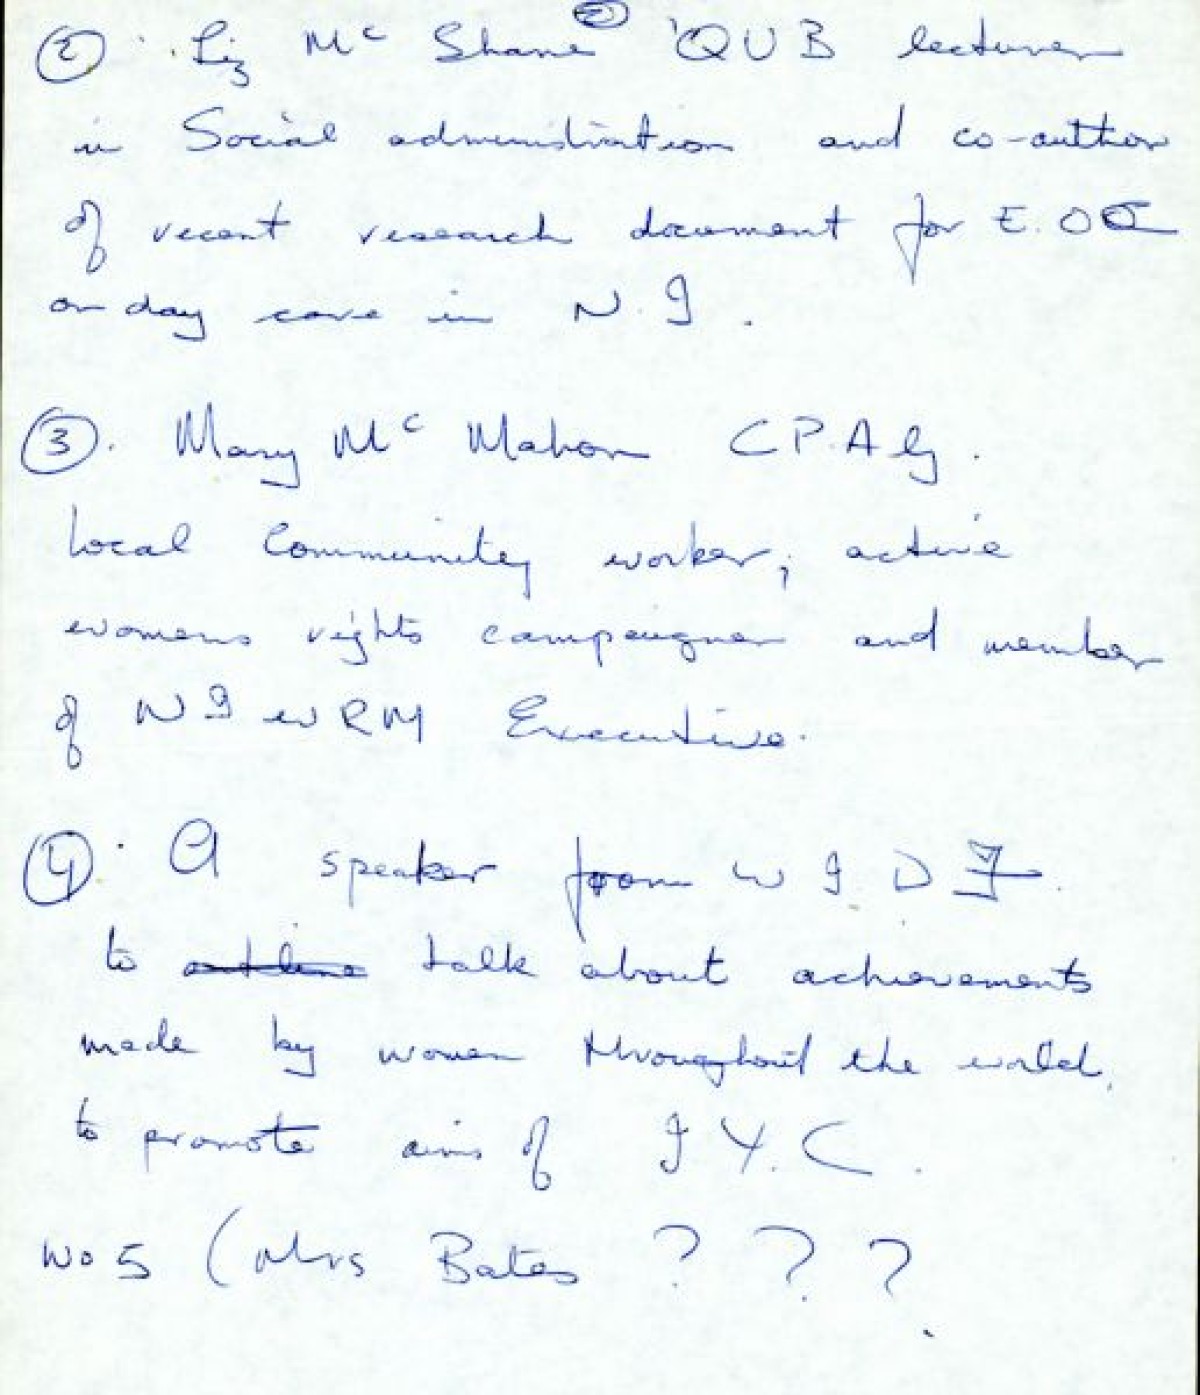 ②
② Liz Mc Shane QUB lecturer
in Social administration and co-author
of recent research document for E.OC
on day care in N.I.
③. Mary Mc Mahon CPAG.
Local Community worker; active
womens rights campaigner and member
of NIWRM Executive.
④. A speaker from WIDF
to outline talk about achievements
made by women throughout the world.
to promote aims of IYC.
No 5 (Mrs Bates ? ? ?